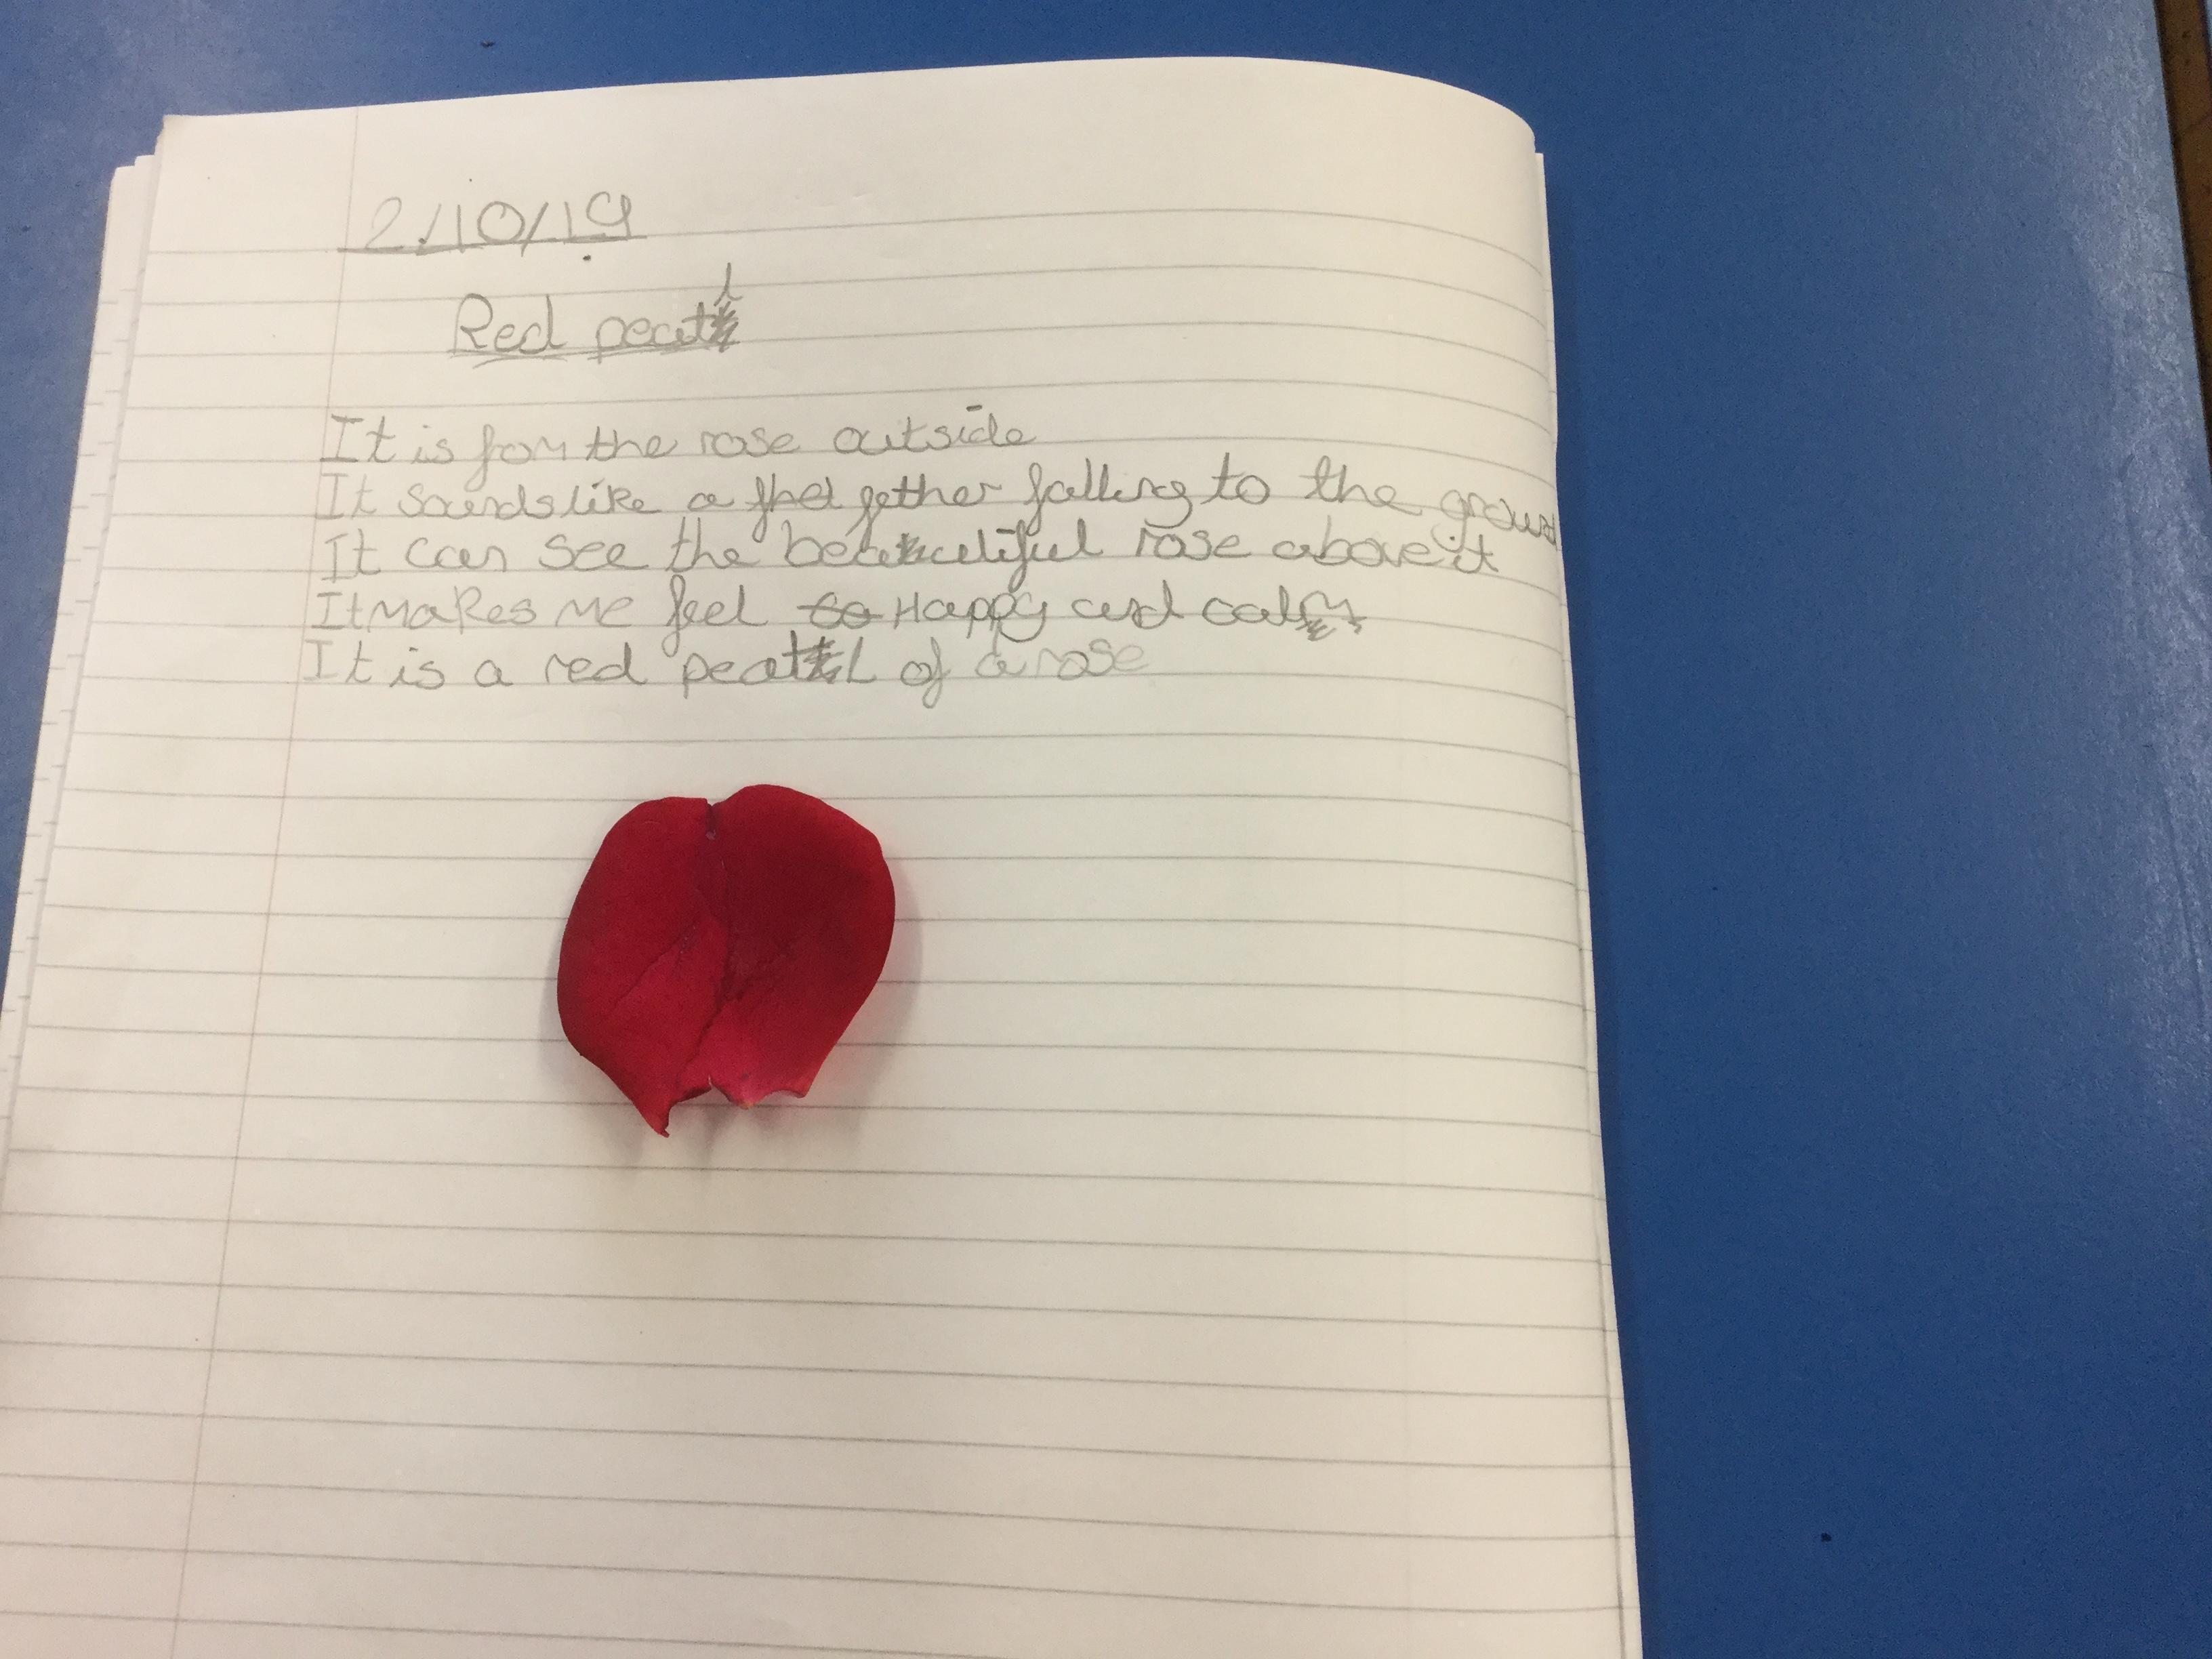 2/10/19
Red peatl
It is fom the rose outside
It sounds like a fhet fether falling to the ground
It can see the beautiful rose above it
It makes me feel to Happy and calm
It is a red peatL of a rose